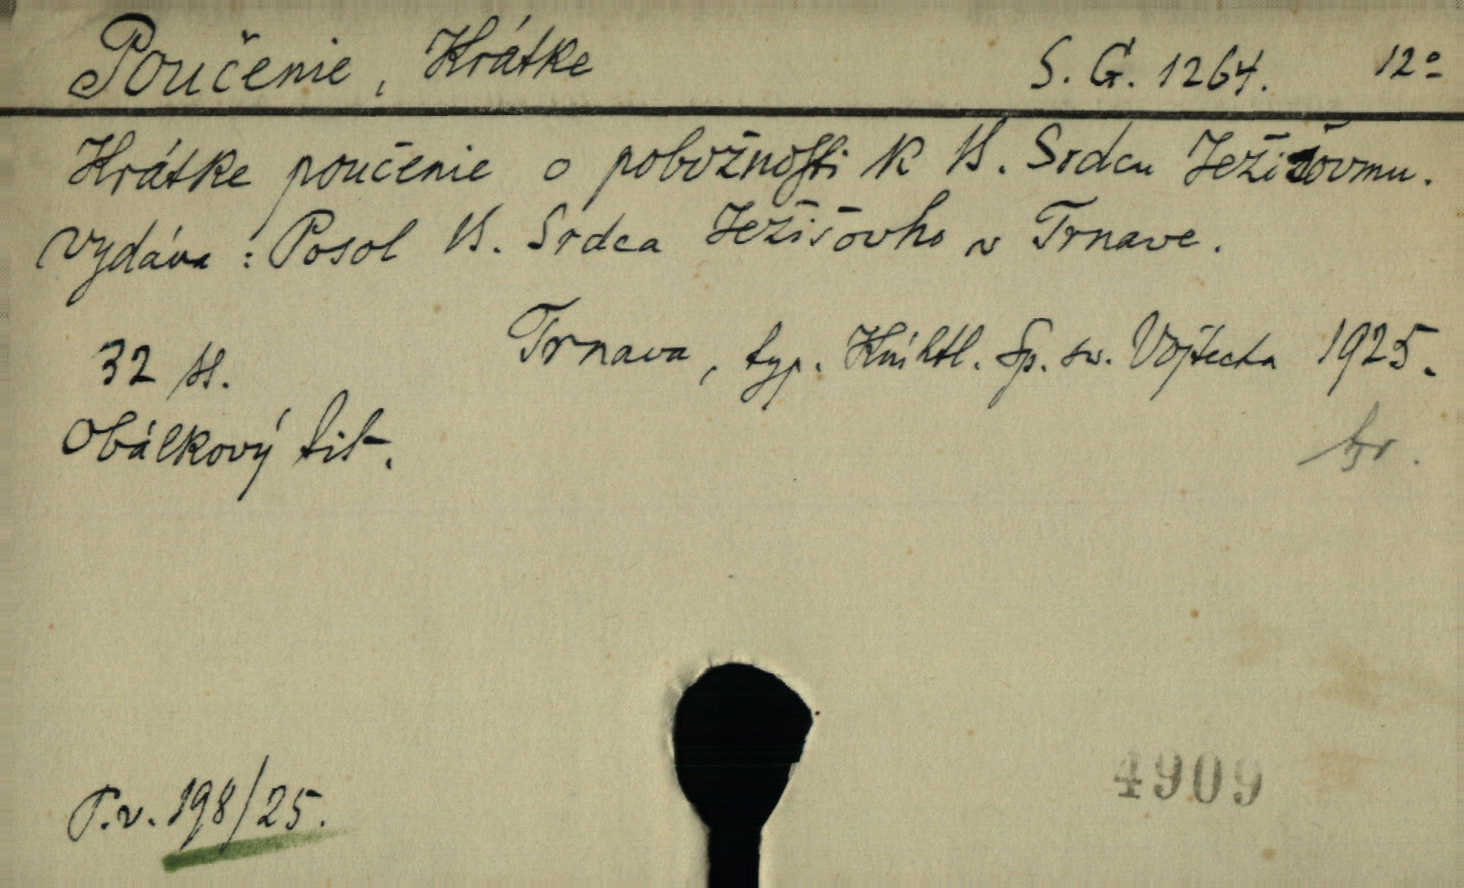 Poučenie, Krátke S. G. 1264. 12°
Krátke poučenie o pobožnosti k B. Srdcu Ježišovmu.
Vydáva: Posol B. Srdca Ježišovho v Trnave.
Trnava, typ. Kníhtl. Sp. sv. Vojtecha 1925.
32 s.
Obálkový tit.
P.v. 198/25.
4909